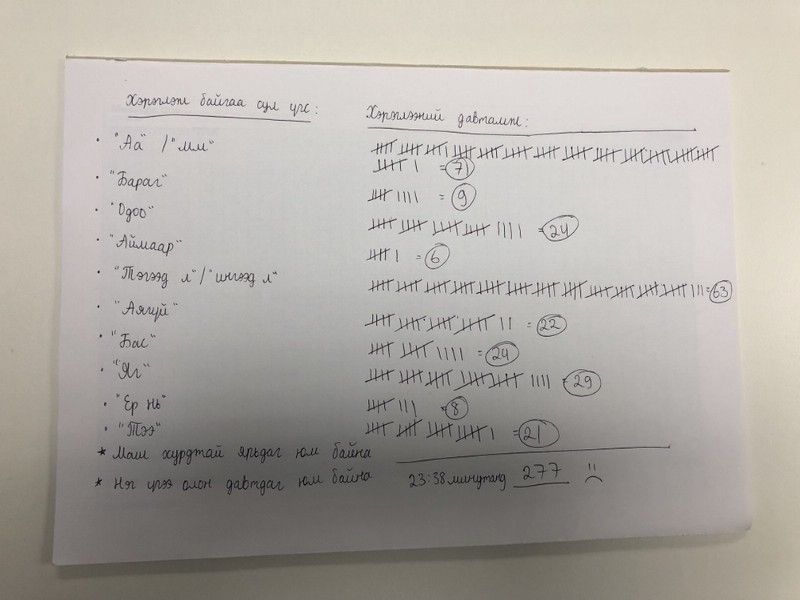 Хэрэглэж байгаа сул үгс:
Хэрэглээний давтамж:
• "Аа" / "мм" = 71
• "Бараг" = 9
• "Одоо" = 24
• "Аймаар" = 6
• "Тэгээд л" / "ингээд л" = 63
• "Аягүй" = 22
• "Бас" = 24
• "Яг" = 29
• "Ер нь" = 8
• "Тээ" = 21
* Маш хурдтай ярьдаг юм байна
* Нэг үгээ олон давтдаг юм байна
23:38 минутанд 277